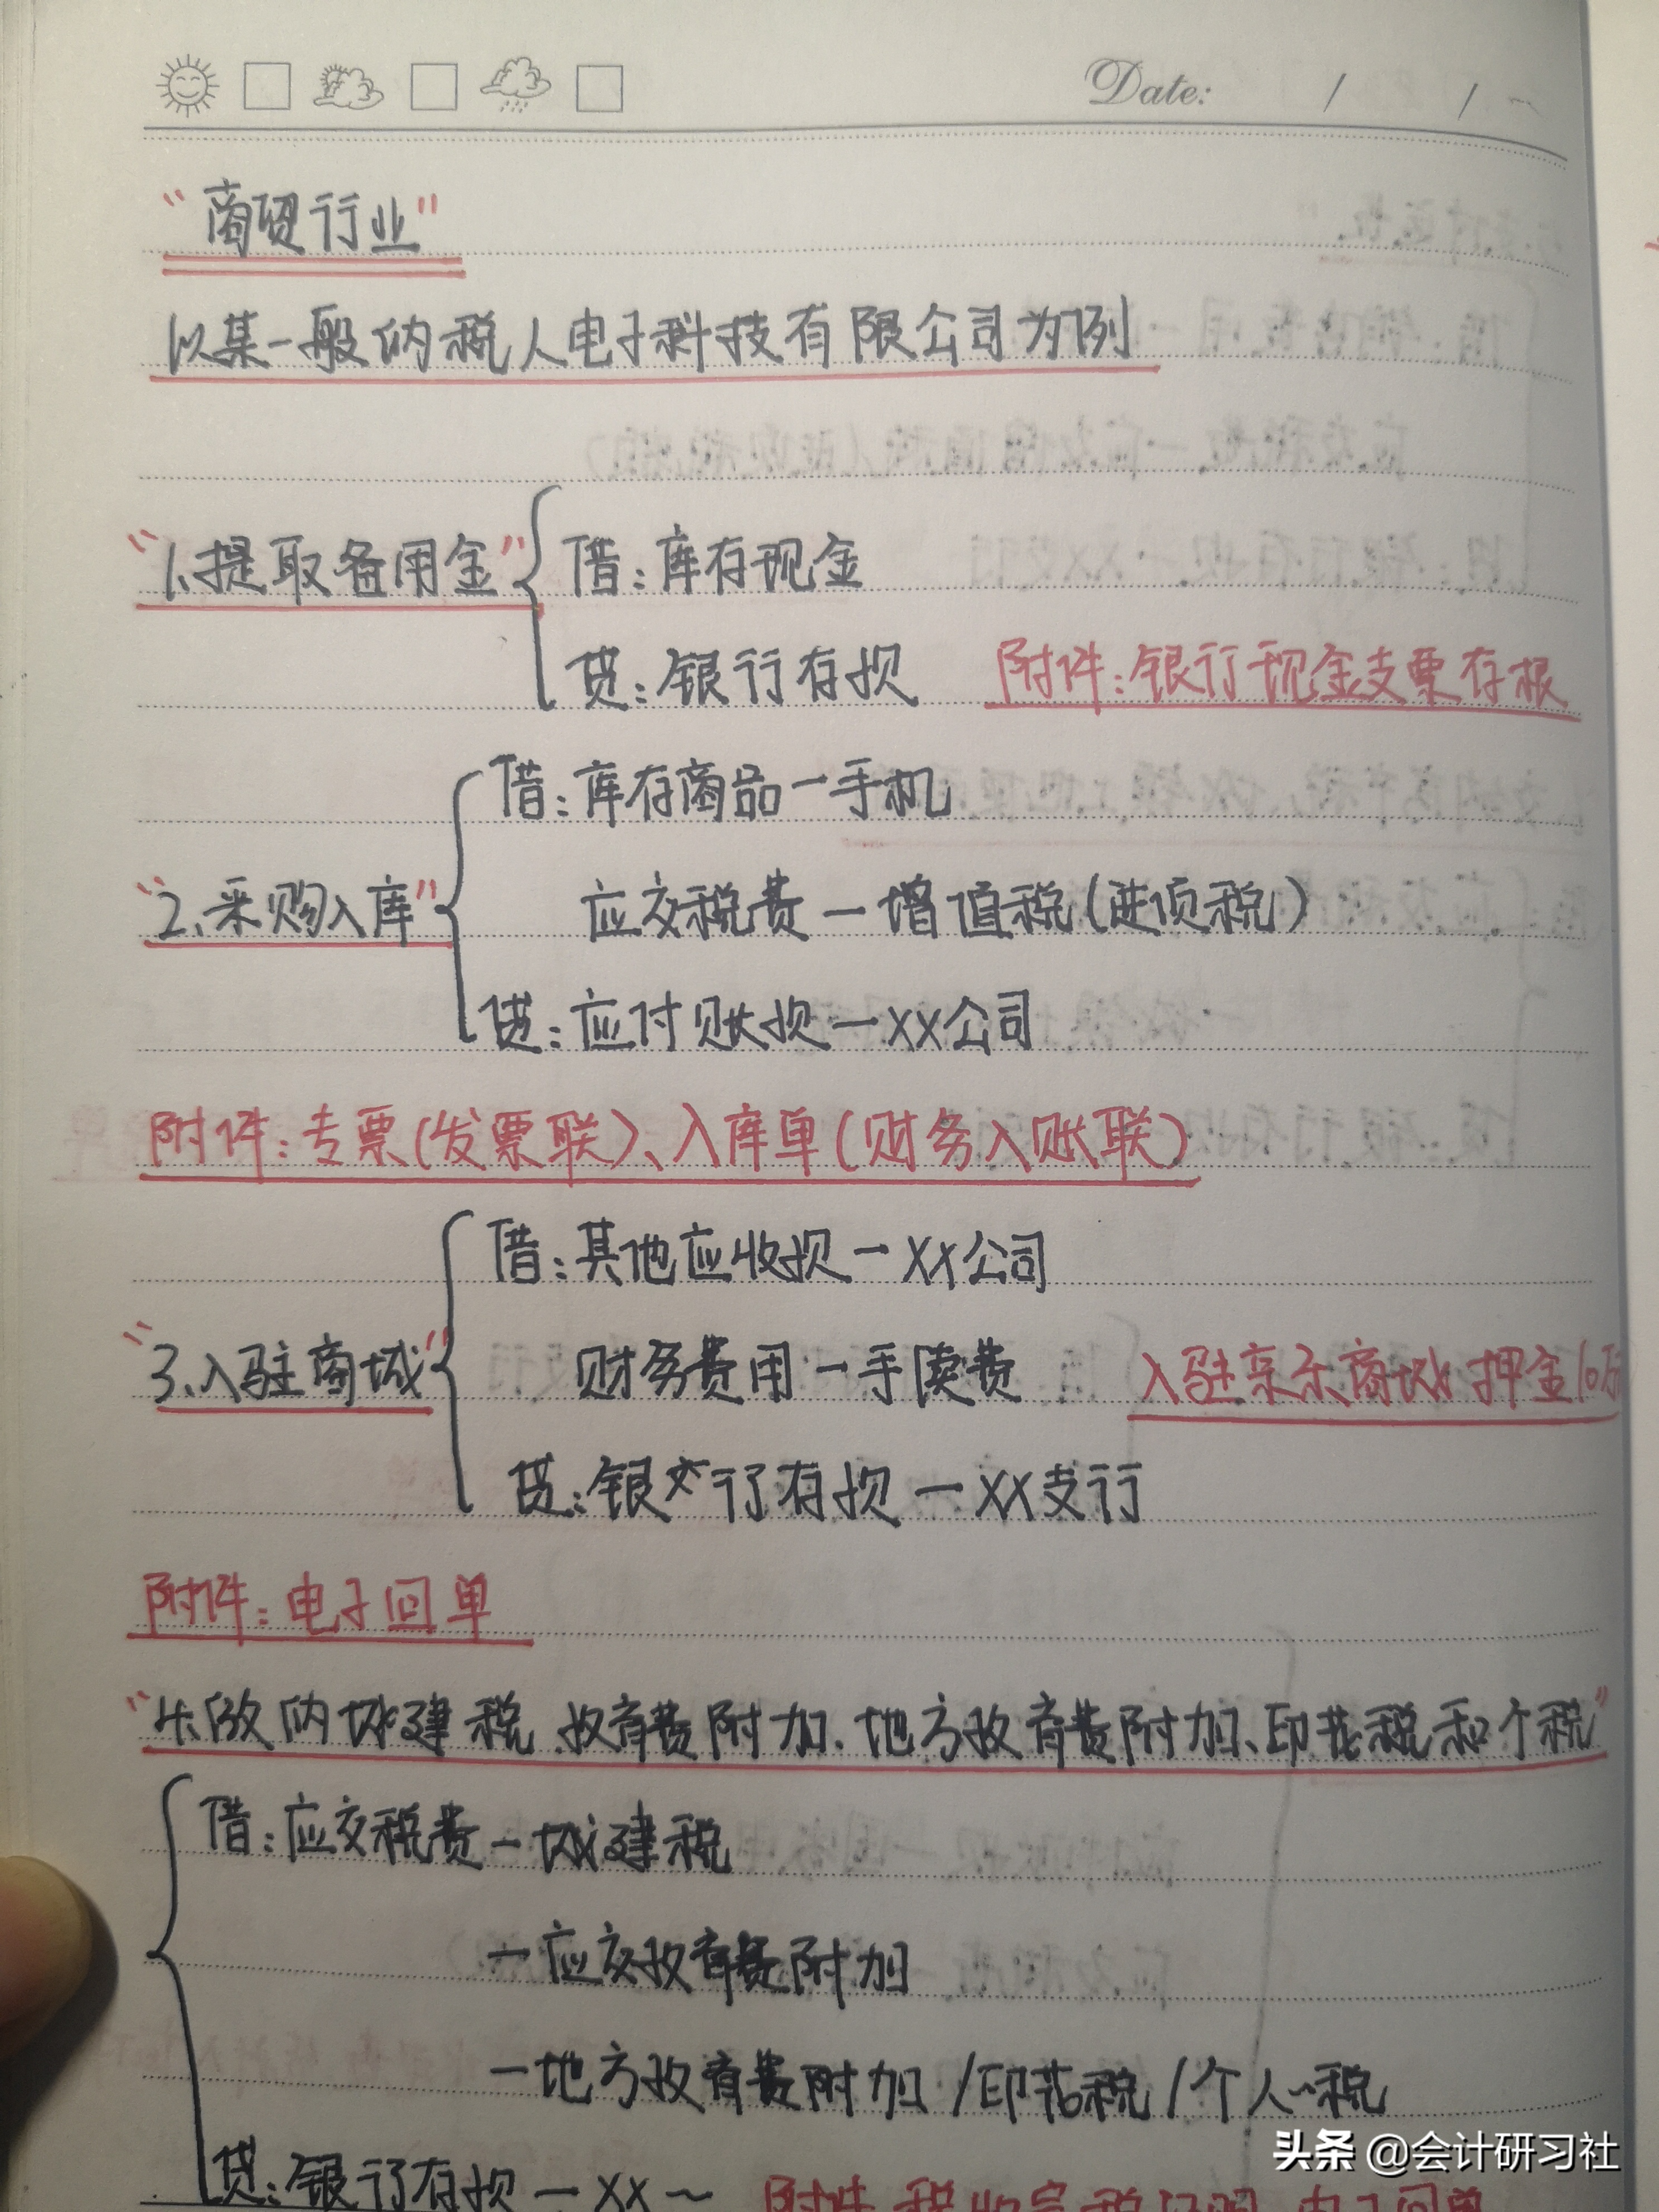 Date: / /
"商贸行业"
以某一般纳税人电子科技有限公司为例
"1、提取备用金" 借：库存现金
贷：银行存款 附件：银行现金支票存根
借：库存商品一手机
"2、采购入库" 应交税费一增值税(进项税)
贷：应付账款一XX公司
附件：专票(发票联)、入库单(财务入账联)
借：其他应收款一XX公司
"3、入驻商城" 财务费用一手续费 入驻京东商城押金10万
贷：银行存款一XX支行
附件：电子回单
"4、缴纳城建税、教育费附加、地方教育费附加、印花税和个税"
借：应交税费一城建税
一应交教育费附加
一地方教育费附加/印花税/个人~税
贷：银行存款一XX~ 附件：税收完税证明、电子回单
头条 @会计研习社